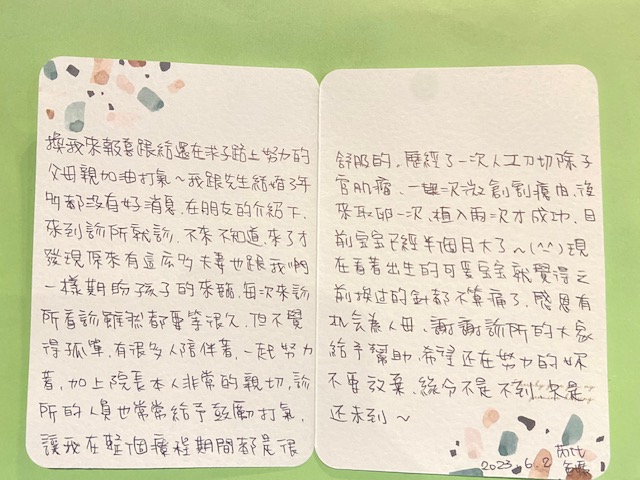 換我來報喜跟給還在求子路上努力的
父母親加油打氣~我跟先生結婚了3年
多都沒有好消息,在朋友的介紹下,
來到診所就診,不來不知道,來了才
發現原來有這麼多夫妻也跟我們
一樣期盼孩子的來臨,每次來診
所看診雖然都要等很久,但不覺
得孤單,有很多人陪伴著,一起努力
著,加上院長本人非常的親切,診
所的人員也常常給予鼓勵打氣,
讓我在整個療程期間都是很
舒服的,歷經了一次人工刀切除子
宮肌瘤、一次微創割瘜肉,後
來取卵一次,植入兩次才成功,目
前寶寶已經半個月大了~(^^)現
在看著出生的可愛寶寶就覺得之
前挨過的針都不算痛了,感恩有
機會為人母,謝謝診所的大家
給予幫助,希望還在努力的妳
不要放棄,緣分不是不到,只是
還未到~
2023.6.2